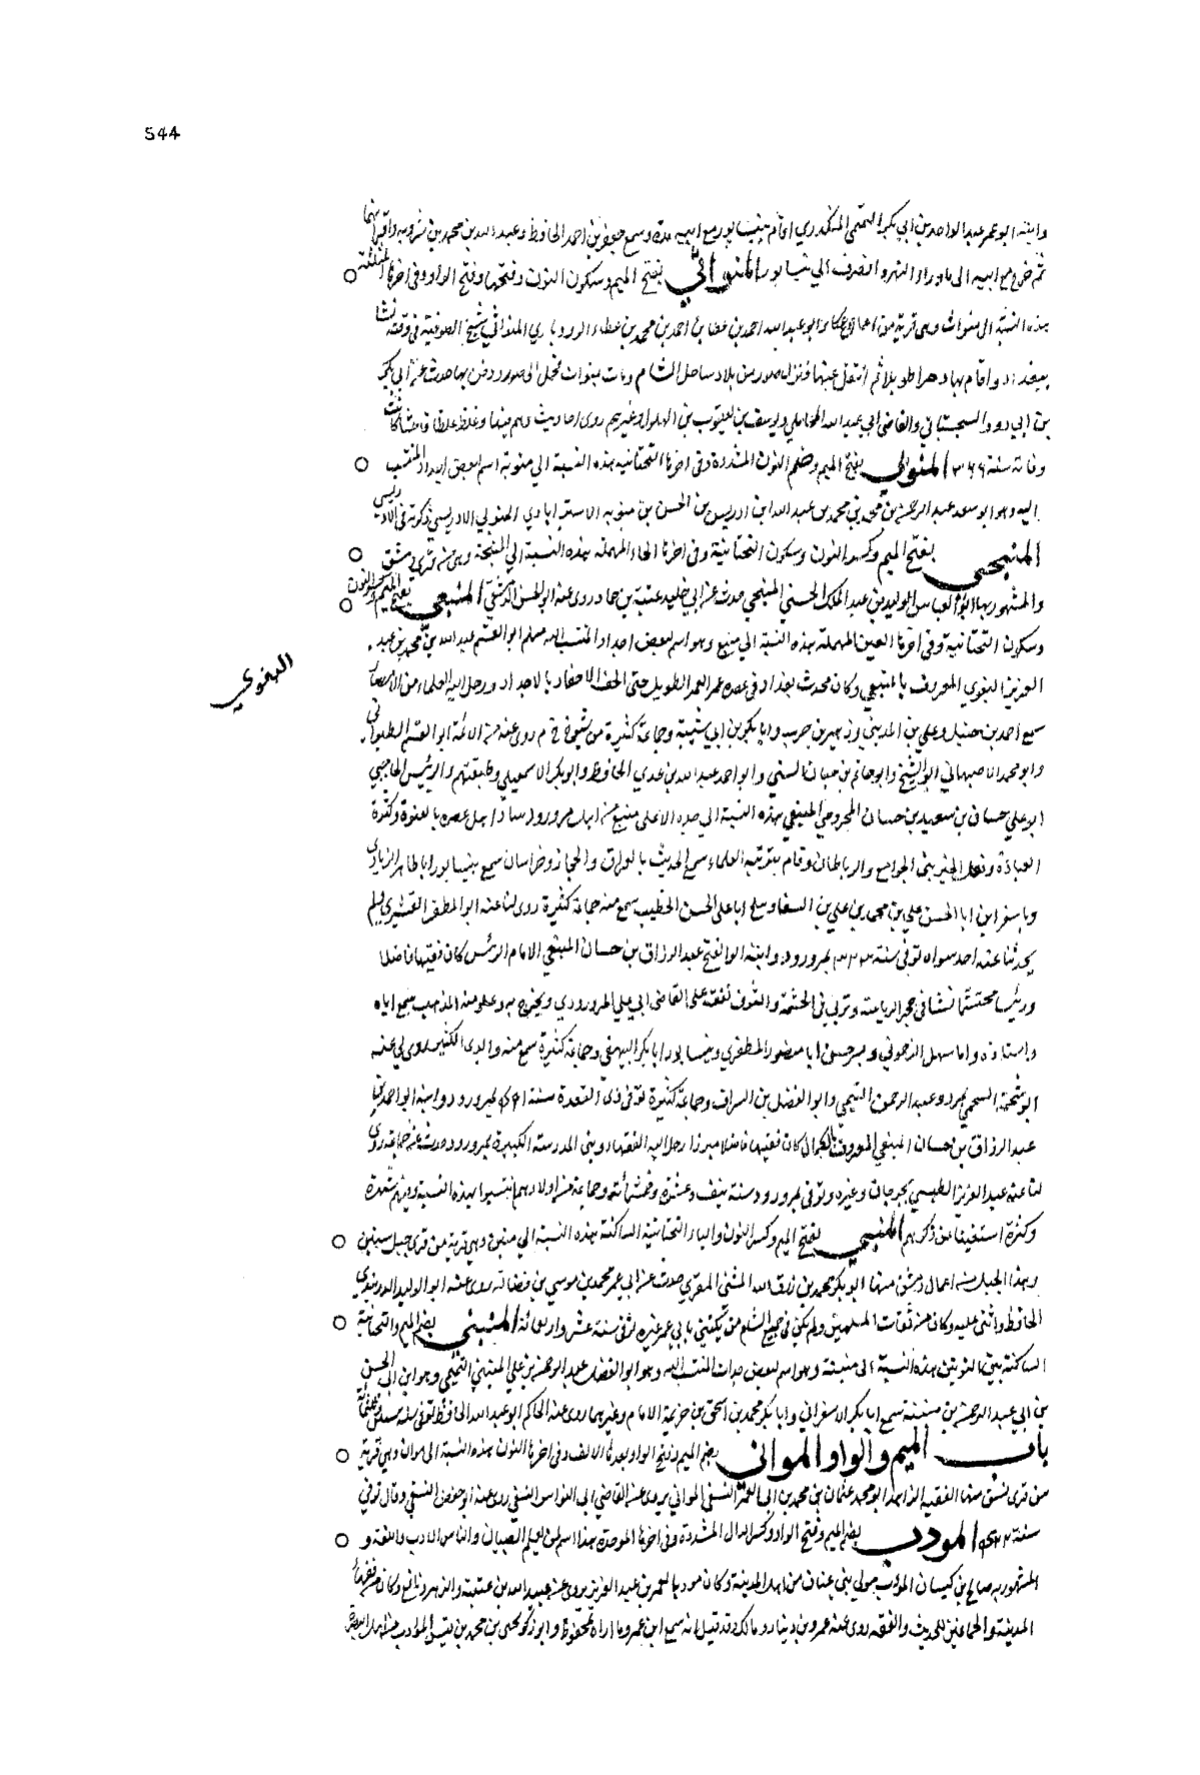 544
وابنه ابو عمر عبد الواحد بن ابي بكر التميمي المنكدري اقام بنيسابور مع ابيه مدة وسمع جعفر بن احمد الحافظ وعبد الله بن محمد بن شرويه واقرانهما
ثم خرج مع ابيه الى ماوراء النهر وانصرف الى نيسابور المنواثي بفتح الميم وسكون النون وفتحها وفتح الواو وفي اخرها المثلثة
هذه النسبة الى منواث وهى قرية من اعمال عكا وابو عبد الله احمد بن عطا بن احمد بن محمد بن عطاء الروذباري المنواثي شيخ الصوفية في وقته نشا
ببغداد واقام بها دهرا طويلا ثم انتقل عنها ونزل صور من بلاد ساحل الشام ومات بمنواث فحمل الى صور ودفن بها حدث عن ابي بكر
بن ابي داود السجستاني والقاضي ابي عبد الله المحاملي ويوسف بن يعقوب بن البهلول وغيرهم روى احاديث وهم فيها وغلط غلطا فاحشا كانت
وفاته سنة ٣٦٩ المنوي بفتح الميم وضم النون المشددة وفي اخرها التحتانية هذه النسبة الى منويه اسم لبعض اجداد المنتسب
اليه وهو ابو سعد عبد الرحمن بن محمد بن محمد بن عبد الله ابن ادريس بن الحسن بن منويه الاستراباذي المنوي الادريسي ذكرته في الادريسي
المنيحي بفتح الميم وكسر النون وسكون التحتانية وفي اخرها الحاء المهملة هذه النسبة الى المنيحة وهى من قرى دمشق
والمشهور بها ابو العباس الوليد بن عبد الملك الحسني المنيحي حدث عن ابي خليد عتبة بن حماد روى عنه ابو الحسن الدمشقي المنيعي بفتح الميم وكسر النون
وسكون التحتانية وفي اخرها العين المهملة هذه النسبة الى منيع وهو اسم لبعض اجداد المنتسب اليه منهم ابو القسم عبد الله بن محمد بن عبد
البغوي
العزيز البغوي المعروف بالمنيعي وكان محدث بغداد في عصره عمر العمر الطويل حتى الحق الاحفاد بالاجداد ورحل اليه العلماء من الامصار
سمع احمد بن حنبل وعلي بن المديني وزهير بن حرب وابا بكر بن ابي شيبة وجماعة كثيرة من شيوخ خ م روى عنه من الائمة ابو القسم الطبراني
وابو محمد الاصبهاني ابو الشيخ وابو حاتم بن حبان البستي وابو احمد عبد الله بن عدي الحافظ وابو بكر الاسمعيلي وطبقتهم والرئيس الحاجي
ابو علي حسان بن سعيد بن حسان المنيعي هذه النسبة الى جده الاعلى منيع من اهل مرورود ساد اهل عصره بالفتوة وكثرة
العبادة وفعل الخير بنى الجوامع والرباطات وقام بتربية العلماء سمع الحديث بالعراق والحجاز وخراسان سمع بنيسابور ابا طاهر الزيادي
وباسفراين ابا الحسن علي بن محمد بن علي بن السقا وببلخ ابا على الحسن الخطيب سمع منه جماعة كثيرة روى لنا عنه ابو المظفر القشيري ولم
يحدثنا عنه احد سواه توفى سنة بمرورود وابنه ابو الفتح عبد الرزاق بن حسان المنيعي الامام الرئيس كان فقيها فاضلا
ورئيسا محتشما نشا في حجر الرياسة وتربى في الحشمة تفقه على القاضي ابي علي المروروذي وتخرج به وعلق منه المذهب سمع اباه
واستاذه وابا منصور المظفري وبنيسابور ابا بكر البيهقي وجماعة كثيرة سمع منه والدى الكثير روى لي عنه
وابو الفضل بن السراف وجماعة كثيرة توفى في ذي القعدة سنة بمرورود وابنه ابو احمد
عبد الرزاق بن حسان المنيعي المعروف كان فقيها فاضلا مبرزا رحل اليه الفقهاء وبنى المدرسة الكبيرة بمرورود حدث عنه جماعة روى
لنا عنه عبد العزيز الطبسي بجرجان وغيره وتوفى بمرورود سنة نيف وعشرة وخمسمائة وجماعة من اولادهم انتسبوا بهذه النسبة وفيهم شهرة
وكثرة استغنينا عن ذكرهم المنيني بفتح الميم وكسر النون والياء التحتانية الساكنة هذه النسبة الى منين وهى قرية من قرى جبل سنير
وهذا الجبل من اعمال دمشق منها ابو بكر محمد بن رزق الله المنيني المقري حدث عن ابي عمر محمد بن موسى بن فضالة روى عنه ابو الوليد الدربندي
الحافظ واثنى عليه وكان من ثقات المسلمين ولم يكن في جميع الشام من يكتنى بابي بكر غيره توفى سنة عشر واربعمائة المنيني بضم الميم والتحتانية
الساكنة بين النونين هذه النسبة الى منينة وهو اسم لبعض جدات المنتسب اليه وهو ابو الفضل عبد الرحمن بن علي المنيني التميمي وهو ابن ابي الحسن
بن ابي عبد الرحمن بن منينة سمع ابا بكر الاسفرايني وابا بكر محمد بن اسحق بن خزيمة الامام وغيرهما روى عنه الحاكم ابو عبد الله الحافظ توفى سنة
باب الميم والواو الموانى بضم الميم وفتح الواو بعدها الالف وفي اخرها النون هذه النسبة الى موان وهى قرية
من قرى نسف منها الفقيه الزاهد ابو محمد عثمان بن محمد بن ابي النسفي المواني يروى عن القاضي ابي الفوارس النسفي روى عنه ابو حفص النسفي وقال توفى
سنة المودب بضم الميم وفتح الواو وكسر الدال المشددة وفي اخرها الموحدة هذا اسم لمن يعلم الصبيان والناس الادب واللغة و
المشهور به صالح بن كيسان المؤدب مولى بني غفار من اهل المدينة وكان مودبا لعمر بن عبد العزيز يروى عن عبيد الله بن عبد الله بن عتبة والزهرى ونافع وكان من فقهاء
المدينة والجامعين للحديث والفقه روى عنه عمرو بن دينار ومالك وقد قيل انه سمع ابن عمر وما اراه بمحفوظ وابو زكريا يحيى بن محمد بن قيس المؤدب من اهل البصرة